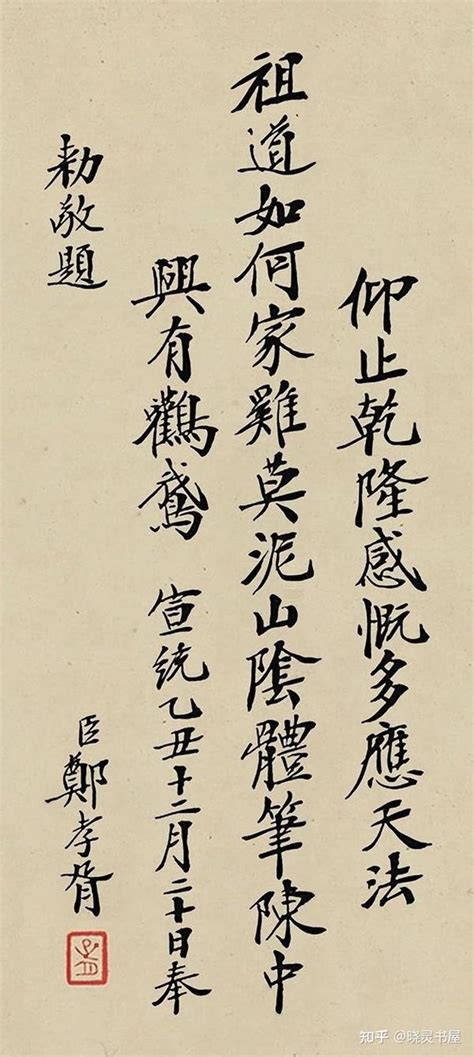 仰止乾隆感慨多應天法
祖道如何家雞莫泥山陰體筆陳中
興有鸛鵞 宣統乙丑十二月二十日奉
勅敬題
臣鄭孝胥
知乎 @晓灵书屋